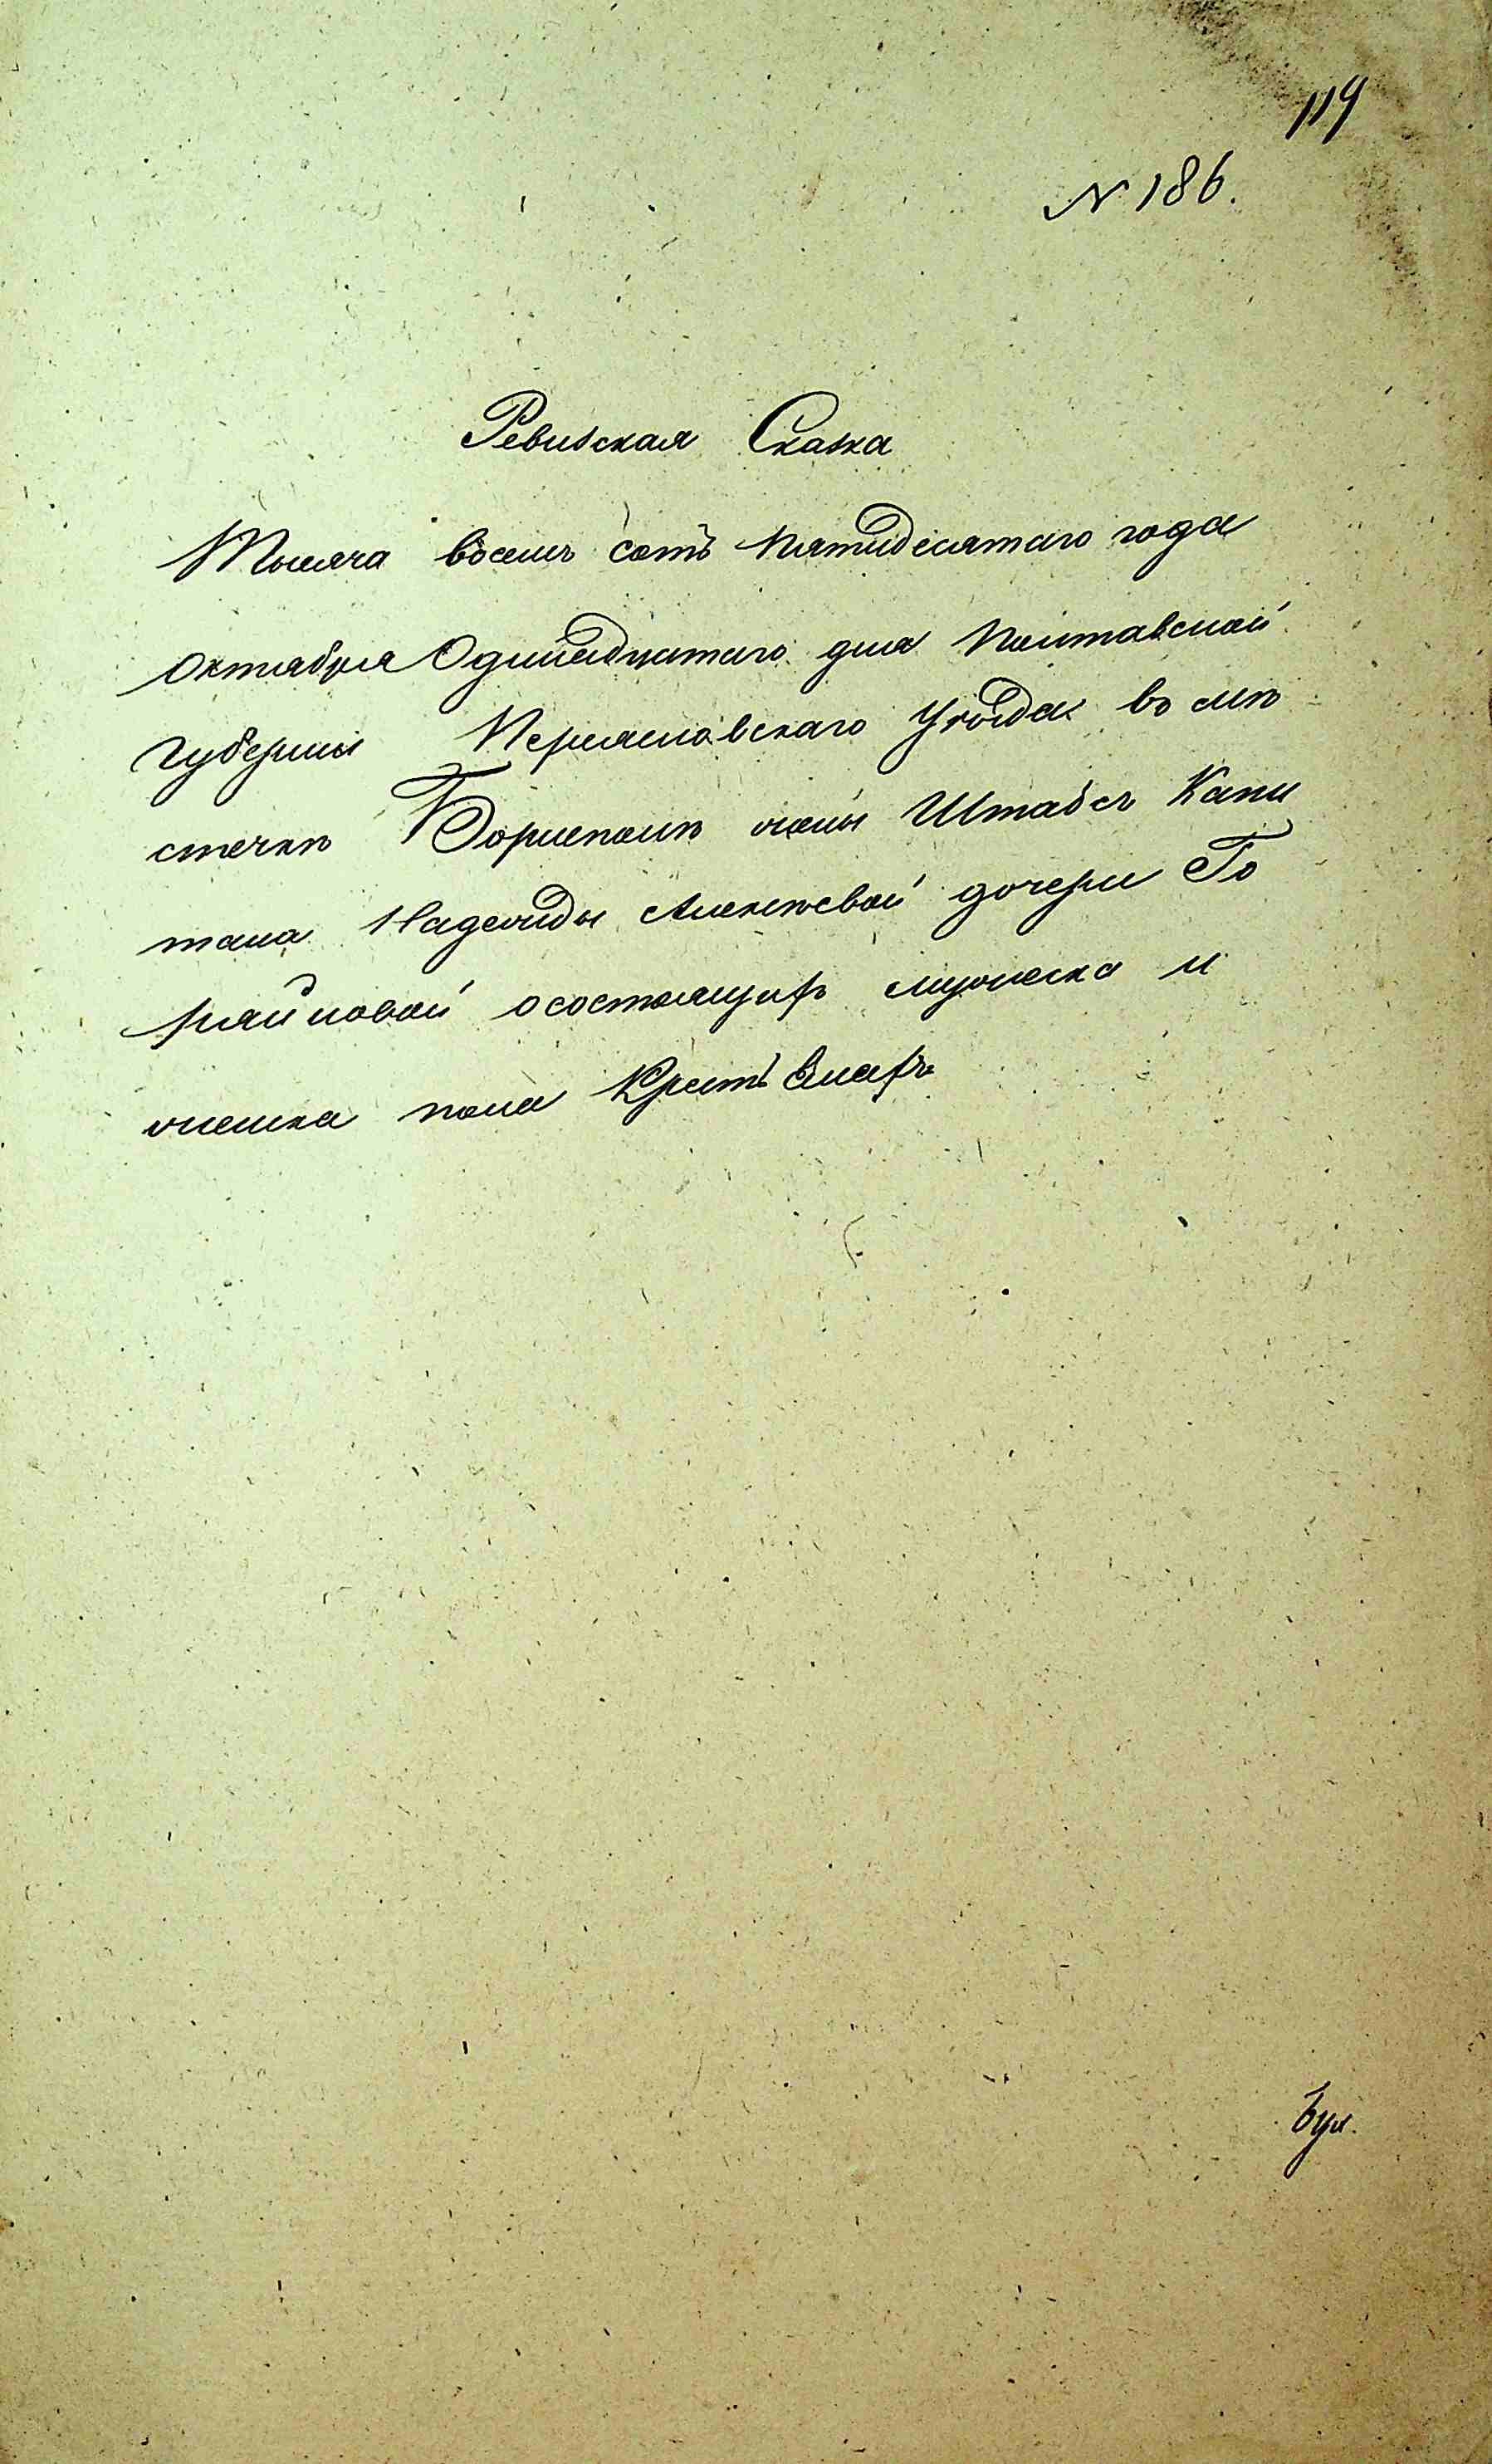 119
N 186.
Ревизская Сказка
Тысяча восемь сотъ пятидесятаго года
октября Одинадцатаго дня Полтавской
губерніи Переяславскаго Уѣзда въ мѣ
стечкѣ Борисполѣ жены Штабсъ Капи
тана Надежды Алексѣевой дочери Го
ряйновой о состоящихъ мужеска и
женска пола Крестьянахъ